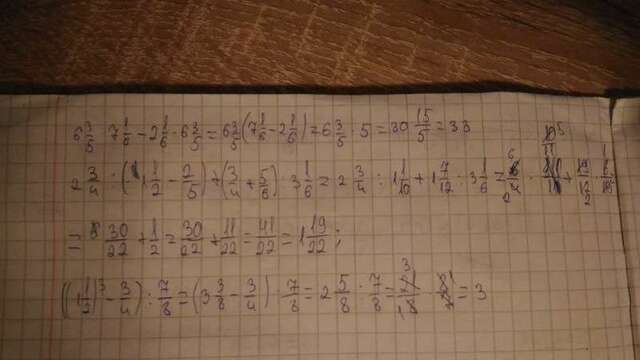 6 3/5 · 7 1/6 - 2 1/6 · 6 3/5 = 6 3/5 (7 1/6 - 2 1/6) = 6 3/5 · 5 = 30 15/5 = 33
2 3/4 : (1 1/2 - 2/5) + (3/4 + 5/6) · 3 1/6 = 2 3/4 : 1 1/10 + 1 7/12 · 3 1/6 =
= 30/22 + 1/2 = 30/22 + 11/22 = 41/22 = 1 19/22 ;
((1 1/2)^3 - 3/4) : 7/8 = (3 3/8 - 3/4) · 7/8 = 2 5/8 · 7/8 = = 3